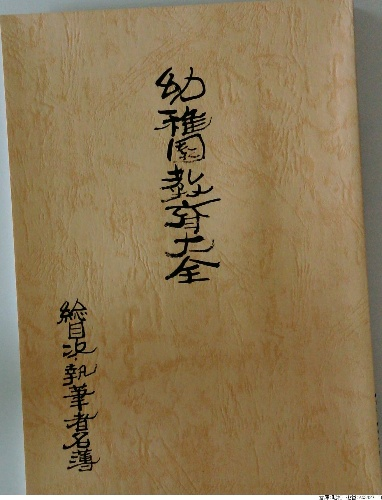 幼稚園教育大全
總目次・執筆者名簿